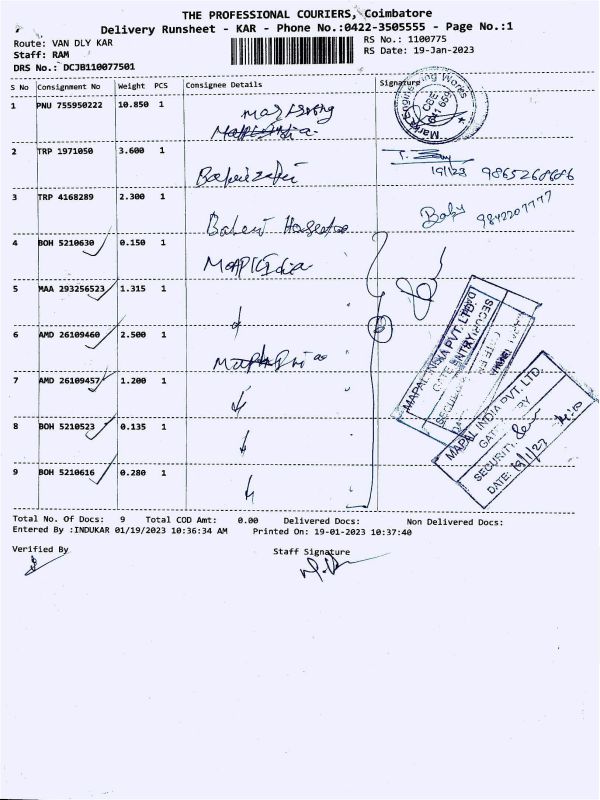 THE PROFESSIONAL COURIERS, Coimbatore
Delivery Runsheet - KAR - Phone No.:0422-3505555 - Page No.:1
Route: VAN DLY KAR RS No.: 1100775
Staff: RAM RS Date: 19-Jan-2023
DRS No.: DCJB110077501
S No Consignment No Weight PCS Consignee Details Signature
1 PNU 755950222 10.850 1
Engineering Works
2 TRP 1971050 3.600 1
19/1/23 9865268686
3 TRP 4168289 2.300 1
Baby 9842207777
4 BOH 5210630 0.150 1
5 MAA 293256523 1.315 1
6 AMD 26109460 2.500 1
7 AMD 26109457 1.200 1
8 BOH 5210523 0.135 1
9 BOH 5210616 0.280 1
MAPAL INDIA PVT. LTD.
GATE ENTRY
MAPAL INDIA PVT. LTD.
GATE ENTRY
SECURITY:
DATE: 19/1/23
Total No. Of Docs: 9 Total COD Amt: 0.00 Delivered Docs: Non Delivered Docs:
Entered By :INDUKAR 01/19/2023 10:36:34 AM Printed On: 19-01-2023 10:37:40
Verified By Staff Signature